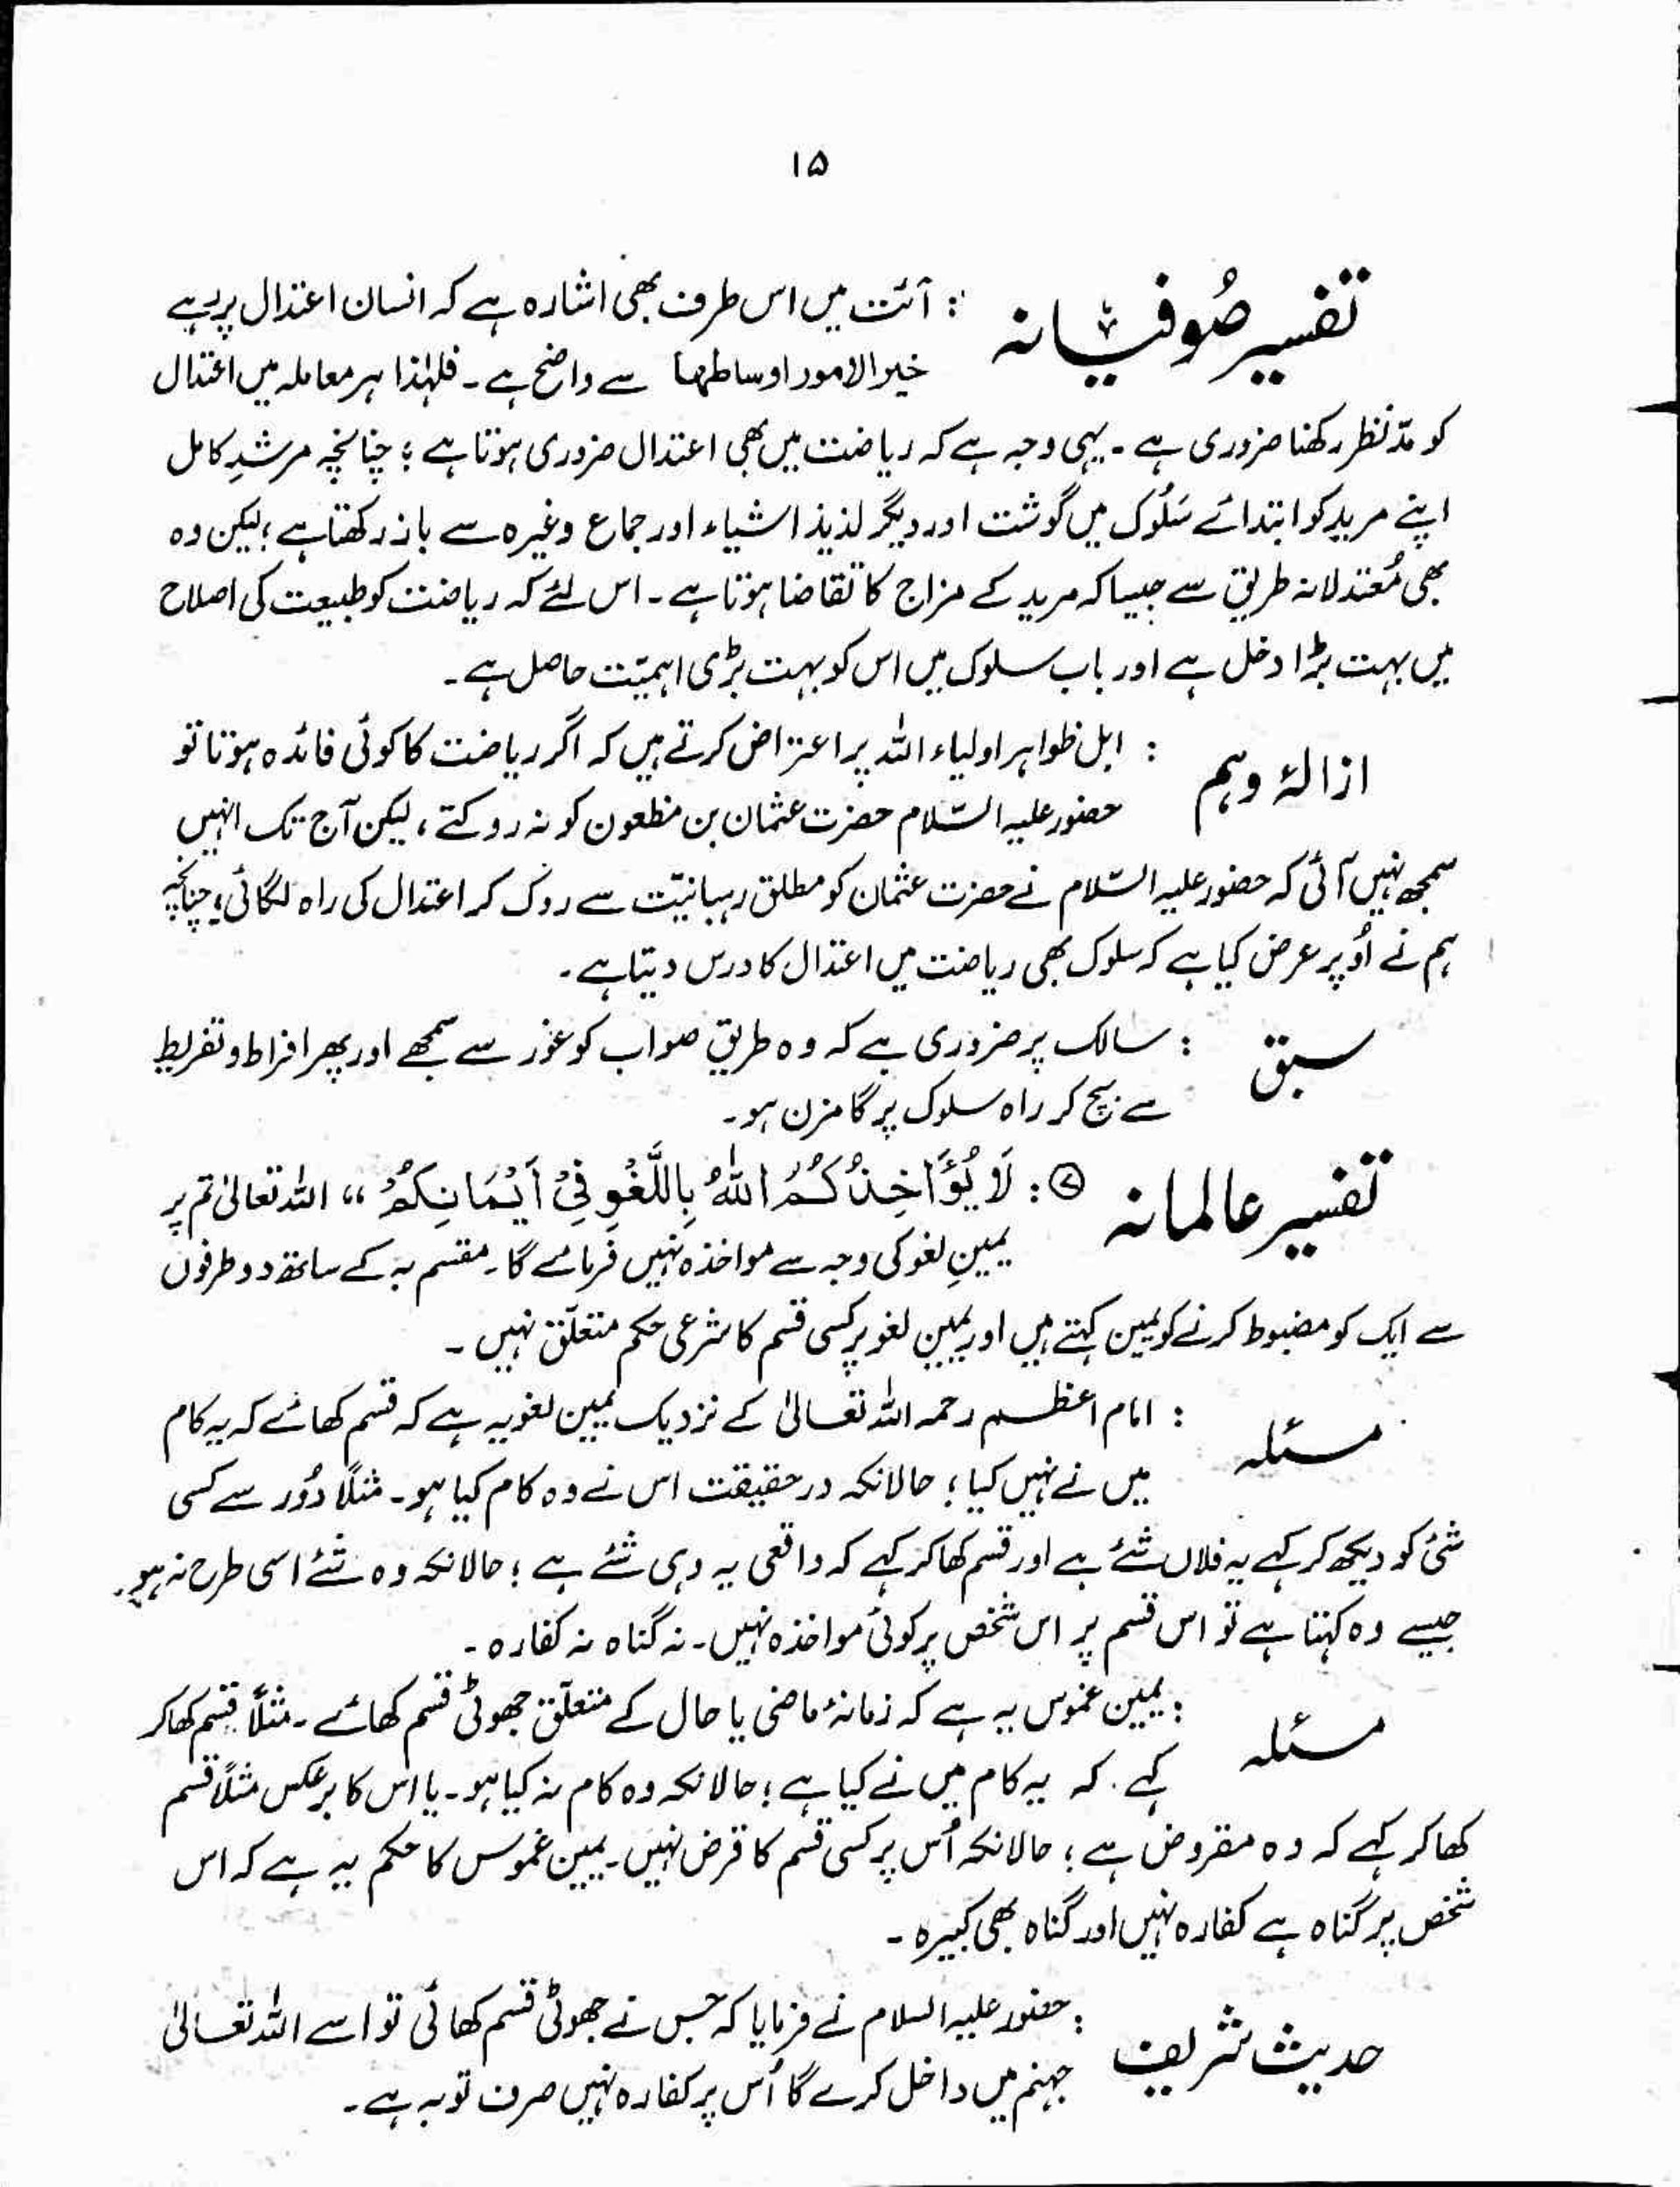 ۱۵
تفسیر صُوفیانہ : آئت میں اس طرف بھی اشارہ ہے کہ انسان اعتدال پر رہے
خیر الامور اوساطھا سے واضح ہے ۔ فلہٰذا ہر معاملہ میں اعتدال
کو مدّنظر رکھنا ضروری ہے ۔ یہی وجہ ہے کہ ریاضت میں بھی اعتدال ضروری ہوتا ہے ؛ چنانچہ مرشدِ کامل
اپنے مرید کو ابتدائے سُلُوک میں گوشت اور دیگر لذیذ اشیاء اور جماع وغیرہ سے باز رکھتا ہے ؛ لیکن وہ
بھی مُعتدلانہ طریق سے جیسا کہ مرید کے مزاج کا تقاضا ہوتا ہے ۔ اس لئے کہ ریاضت کو طبیعت کی اصلاح
میں بہت بڑا دخل ہے اور باب سلوک میں اس کو بہت بڑی اہمیّت حاصل ہے ۔
ازالۂ وہم : اہل ظواہر اولیاء اللہ پر اعتراض کرتے ہیں کہ اگر ریاضت کا کوئی فائدہ ہوتا تو
حضور علیہ السّلام حضرت عثمان بن مظعون کو نہ روکتے ، لیکن آج تک انہیں
سمجھ نہیں آئی کہ حضور علیہ السّلام نے حضرت عثمان کو مطلق رہبانیّت سے روک کر اعتدال کی راہ لگائی ؛ چنانچہ
ہم نے اُوپر عرض کیا ہے کہ سلوک بھی ریاضت میں اعتدال کا درس دیتا ہے ۔
سبق : سالک پر ضروری ہے کہ وہ طریقِ صواب کو غور سے سمجھے اور پھر افراط و تفریط
سے بچ کر راہ سلوک پر گامزن ہو ۔
تفسیر عالمانہ ⑦ : لَا يُؤَاخِذُكُمُ اللّٰهُ بِاللَّغْوِ فِيْ اَيْمَانِكُمْ ،، اللہ تعالیٰ تم پر
یمینِ لغو کی وجہ سے مواخذہ نہیں فرمائے گا ۔ مقسم بہ کے ساتھ دو طرفوں
سے ایک کو مضبوط کرنے کو یمین کہتے ہیں اور یمین لغو پر کسی قسم کا شرعی حکم متعلّق نہیں ۔
مسئلہ : امام اعظم رحمہ اللہ تعالیٰ کے نزدیک یمین لغو یہ ہے کہ قسم کھائے کہ یہ کام
میں نے نہیں کیا ؛ حالانکہ درحقیقت اس نے وہ کام کیا ہو ۔ مثلاً دُور سے کسی
شئ کو دیکھ کر کہے یہ فلاں شئے ہے اور قسم کھا کر کہے کہ واقعی یہ وہی شئے ہے ؛ حالانکہ وہ شئے اسی طرح نہ ہو ۔
جیسے وہ کہتا ہے تو اس قسم پر اس شخص پر کوئی مواخذہ نہیں ۔ نہ گناہ نہ کفارہ ۔
مسئلہ : یمین غموس یہ ہے کہ زمانۂ ماضی یا حال کے متعلّق جھوٹی قسم کھائے ۔ مثلاً قسم کھا کر
کہے کہ یہ کام میں نے کیا ہے ؛ حالانکہ وہ کام نہ کیا ہو ۔ یا اس کا برعکس مثلاً قسم
کھا کر کہے کہ وہ مقروض ہے ؛ حالانکہ اُس پر کسی قسم کا قرض نہیں ۔ یمین غموس کا حکم یہ ہے کہ اس
شخص پر گناہ ہے کفارہ نہیں اور گناہ بھی کبیرہ ۔
حدیث شریف : حضور علیہ السلام نے فرمایا کہ جس نے جھوٹی قسم کھائی تو اسے اللہ تعالیٰ
جہنم میں داخل کرے گا اُس پر کفارہ نہیں صرف توبہ ہے ۔